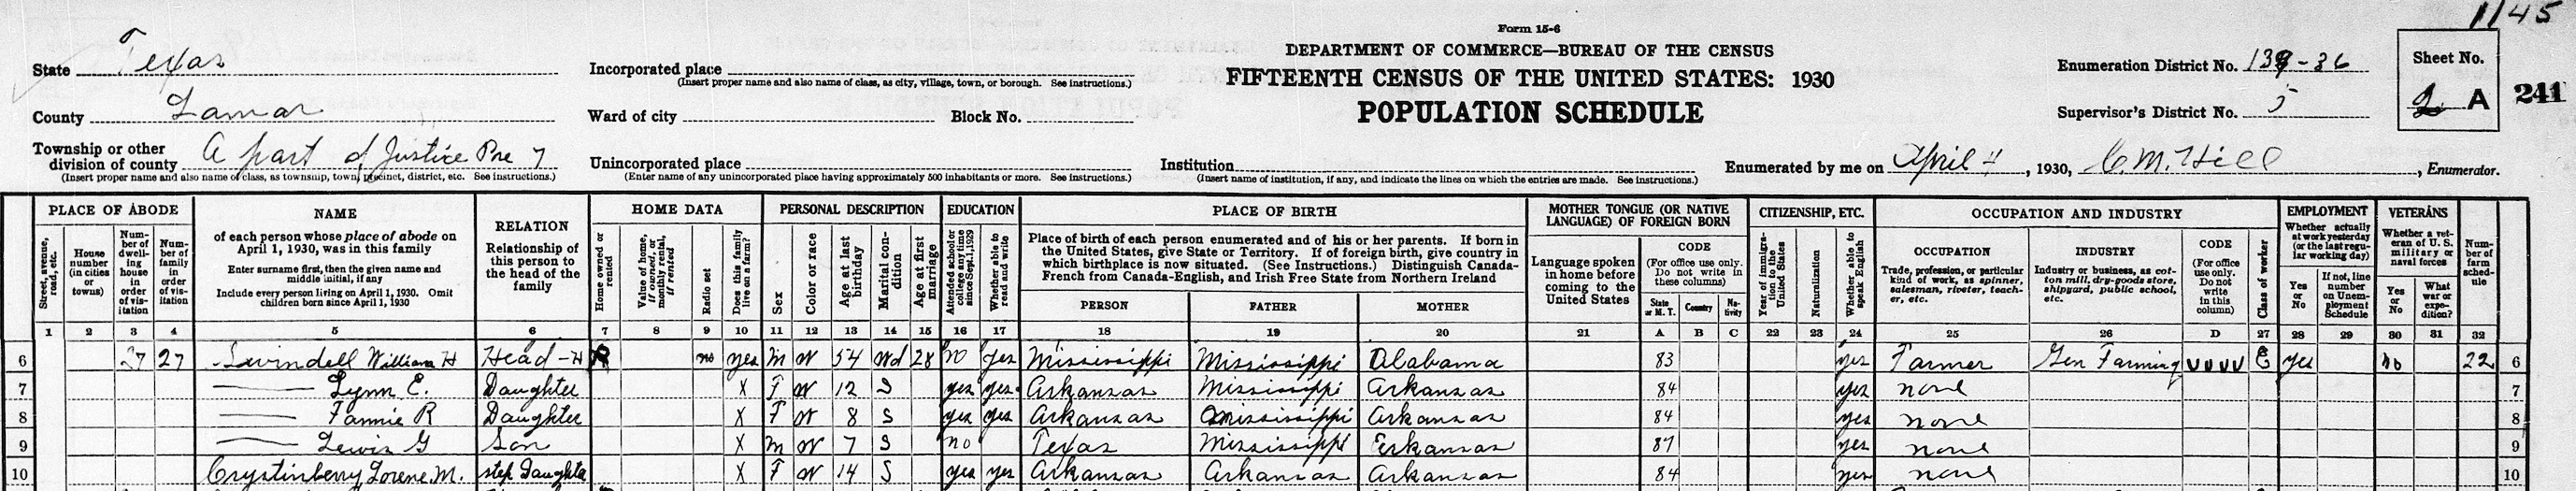 1/45
Form 15-6
DEPARTMENT OF COMMERCE—BUREAU OF THE CENSUS
FIFTEENTH CENSUS OF THE UNITED STATES: 1930
POPULATION SCHEDULE
State Texas
County Lamar
Township or other division of county A part of Justice Pre 7
(Insert proper name and also name of class, as township, town, precinct, district, etc. See instructions.)
Incorporated place
(Insert proper name and also name of class, as city, village, town, or borough. See instructions.)
Ward of city Block No.
Unincorporated place
(Enter name of any unincorporated place having approximately 500 inhabitants or more. See instructions.)
Institution
(Insert name of institution, if any, and indicate the lines on which the entries are made. See instructions.)
Enumeration District No. 139-36
Supervisor's District No. 5
Sheet No.
2 A
241
Enumerated by me on April 4, 1930, C.M. Hill, Enumerator.
PLACE OF ABODE
Street, avenue, road, etc.
House number (in cities or towns)
Number of dwelling house in order of visitation
Number of family in order of visitation
NAME
of each person whose place of abode on April 1, 1930, was in this family
Enter surname first, then the given name and middle initial, if any
Include every person living on April 1, 1930. Omit children born since April 1, 1930
RELATION
Relationship of this person to the head of the family
HOME DATA
Home owned or rented
Value of home, if owned, or monthly rental, if rented
Radio set
Does this family live on a farm?
PERSONAL DESCRIPTION
Sex
Color or race
Age at last birthday
Marital condition
Age at first marriage
EDUCATION
Attended school or college any time since Sept. 1, 1929
Whether able to read and write
PLACE OF BIRTH
Place of birth of each person enumerated and of his or her parents. If born in the United States, give State or Territory. If of foreign birth, give country in which birthplace is now situated. (See Instructions.) Distinguish Canada-French from Canada-English, and Irish Free State from Northern Ireland
PERSON FATHER MOTHER
MOTHER TONGUE (OR NATIVE LANGUAGE) OF FOREIGN BORN
Language spoken in home before coming to the United States
CODE
(For office use only. Do not write in these columns)
State or M. T. Country Nativity
CITIZENSHIP, ETC.
Year of immigration to the United States
Naturalization
Whether able to speak English
OCCUPATION AND INDUSTRY
OCCUPATION
Trade, profession, or particular kind of work, as spinner, salesman, riveter, teacher, etc.
INDUSTRY
Industry or business, as cotton mill, dry-goods store, shipyard, public school, etc.
CODE
(For office use only. Do not write in this column)
Class of worker
EMPLOYMENT
Whether actually at work yesterday (or the last regular working day)
Yes or No
If not, line number on Unemployment Schedule
VETERANS
Whether a veteran of U. S. military or naval forces
Yes or No
What war or expedition?
Number of farm schedule
1 2 3 4 5 6 7 8 9 10 11 12 13 14 15 16 17 18 19 20 21 A B C 22 23 24 25 26 D 27 28 29 30 31 32
6 27 27 Swindell William H Head-H R no yes M W 54 Wd 28 no yes Mississippi Mississippi Alabama 83 yes Farmer Gen Farming VVVV E yes no 22 6
7 Lynn E. Daughter X F W 12 S yes yes Arkansas Mississippi Arkansas 84 yes none 7
8 Fannie R Daughter X F W 8 S yes yes Arkansas Mississippi Arkansas 84 yes none 8
9 Lewis G Son X M W 7 S no Texas Mississippi Arkansas 87 yes none 9
10 Crystinberry Lorene M. step Daughter X F W 14 S yes yes Arkansas Arkansas Arkansas 84 yes none 10